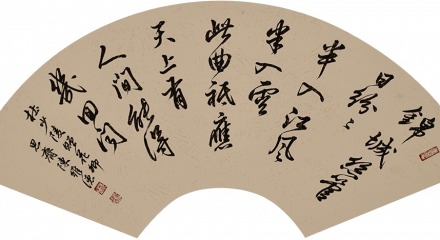 錦城絲管
日紛〻
半入江風
半入雲
此曲祗應
天上有
人間能得
幾回聞
杜少陵贈花卿
陳